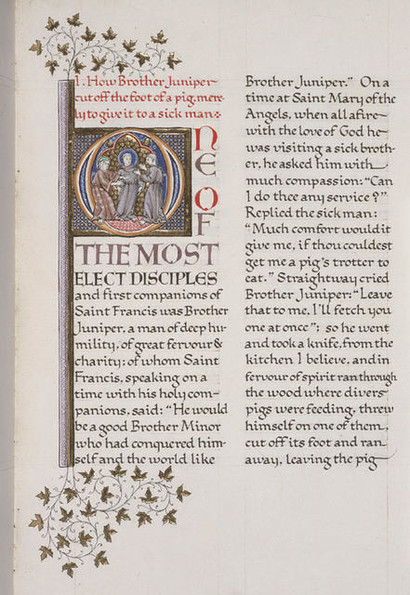 1. How Brother Juniper
cut off the foot of a pig, mere-
ly to give it to a sick man:
ONE OF
THE MOST
ELECT DISCIPLES
and first companions of
Saint Francis was Brother
Juniper, a man of deep hu-
mility, of great fervour &
charity: of whom Saint
Francis, speaking on a
time with his holy com-
panions, said: "He would
be a good Brother Minor
who had conquered him-
self and the world like
Brother Juniper." On a
time at Saint Mary of the
Angels, when all afire
with the love of God he
was visiting a sick broth-
er, he asked him with
much compassion: "Can
I do thee any service?"
Replied the sick man:
"Much comfort would it
give me, if thou couldest
get me a pig's trotter to
eat." Straightway cried
Brother Juniper: "Leave
that to me, I'll fetch you
one at once"; so he went
and took a knife, from the
kitchen I believe, and in
fervour of spirit ran through
the wood where divers
pigs were feeding, threw
himself on one of them,
cut off its foot and ran
away, leaving the pig